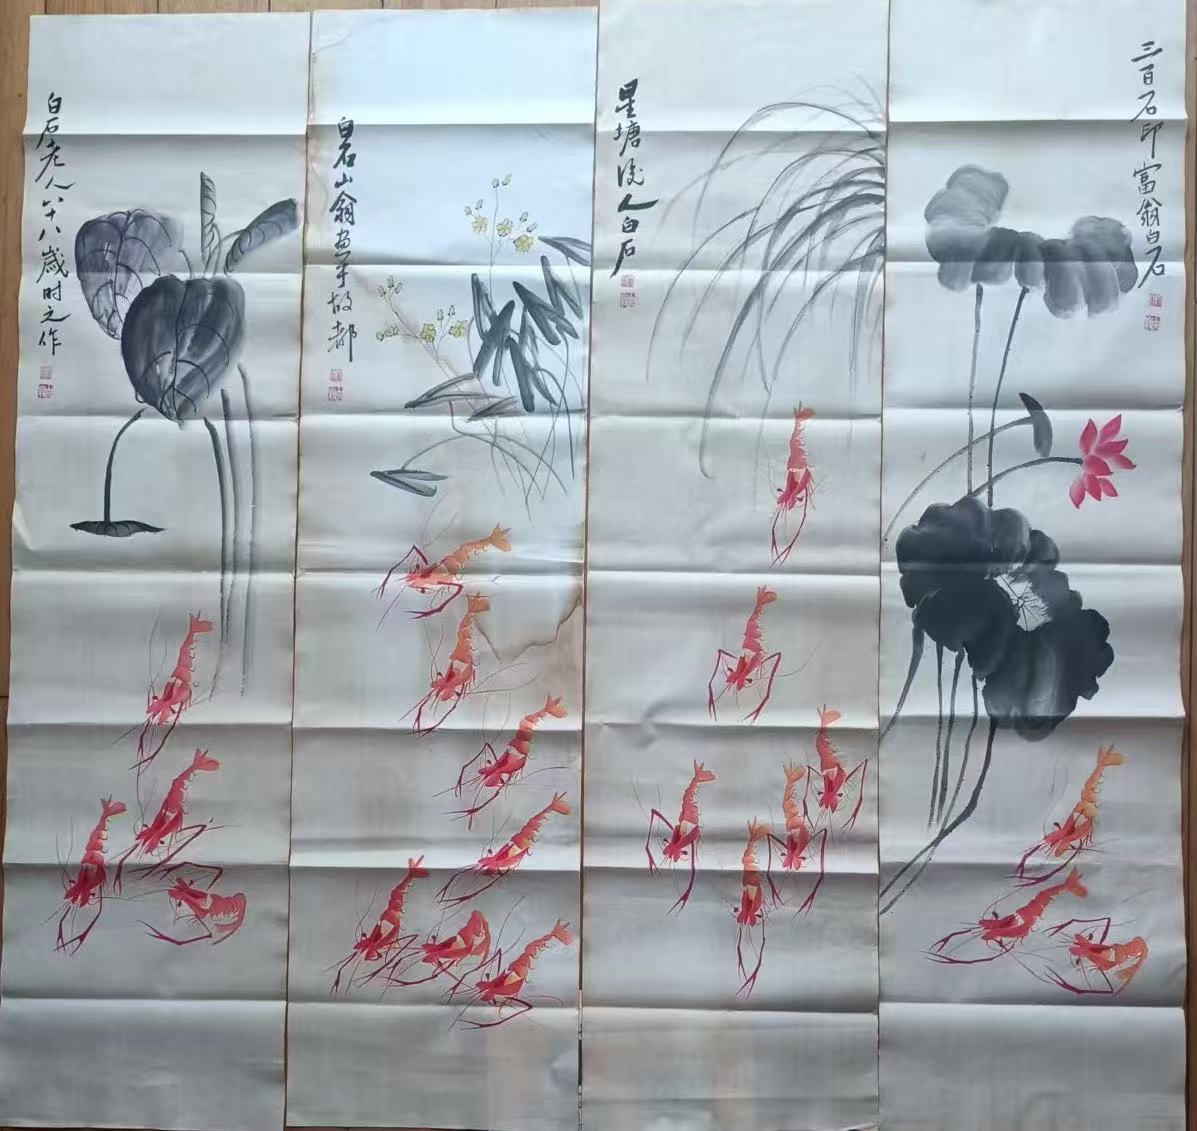 三百石印富翁白石
星塘後人白石
白石山翁画于故都
白石老人八十八歲时之作